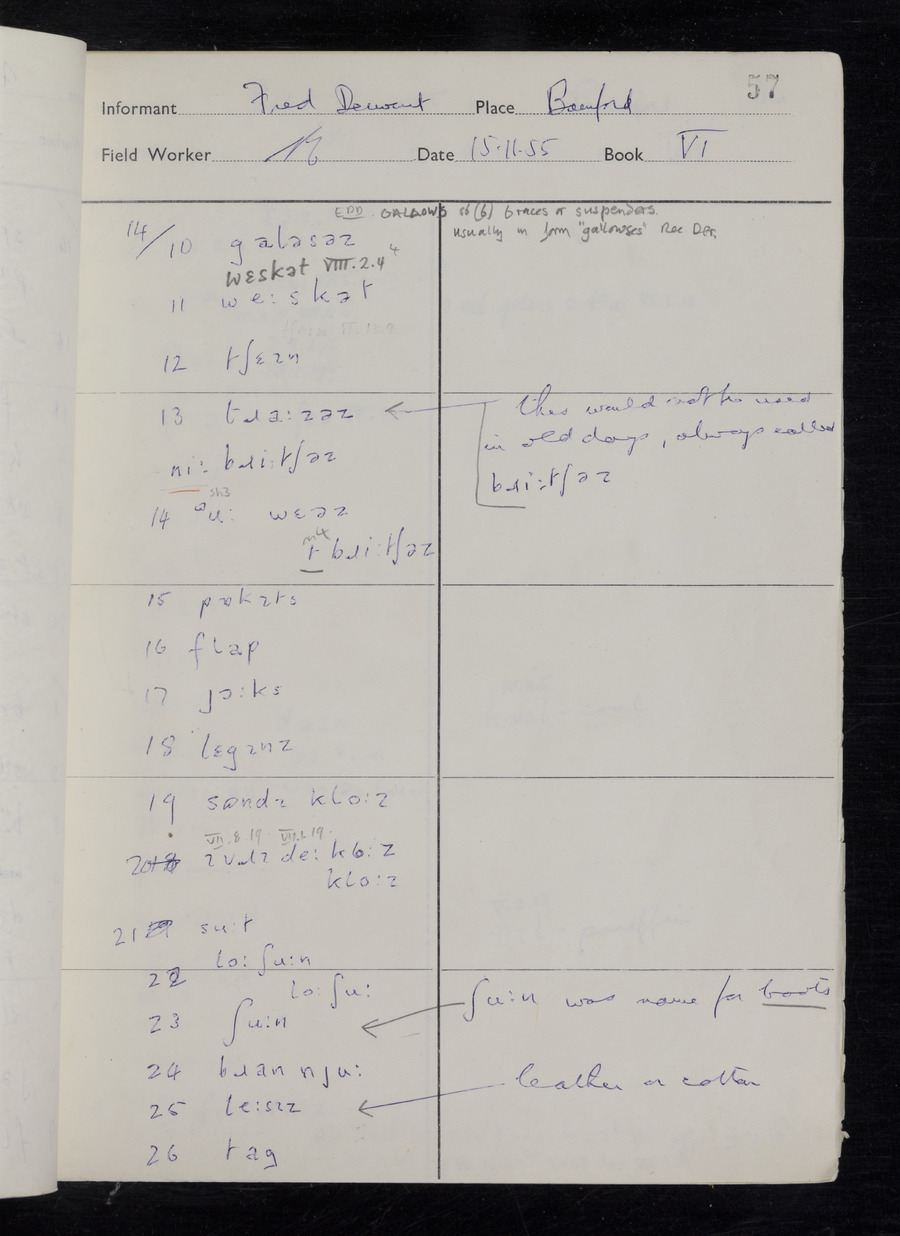 57
Informant Fred Derwent Place Bamford
Field Worker Date 15·11·55 Book VI
EDD. GALLOWS sb (6) braces or suspenders.
usually in form "gallowses" Rec Der.
14/10 galəsəz
wɛskət VIII.2.4
11 we:skət
12 tʃɛɪn
13 tɹa:zəz
this would not be used
in old days, always called
bɹi:tʃəz
ni: bɹi:tʃəz
14 ᵊu: wɛəz
t bɹi:tʃəz
15 pɒkɪts
16 flap
17 jɔ:ks
18 lɛgɪnz
19 sʊndɪ klo:z
VII.8.19 VII.1.19
20 ɪvɹɪ de: klo:z
klo:z
21 su:t
22 lo: ʃu:n
lo: ʃu:
23 ʃu:n
ʃu:n was name for boots
24 bɹan nju:
25 le:sɪz
leather or cotton
26 tag